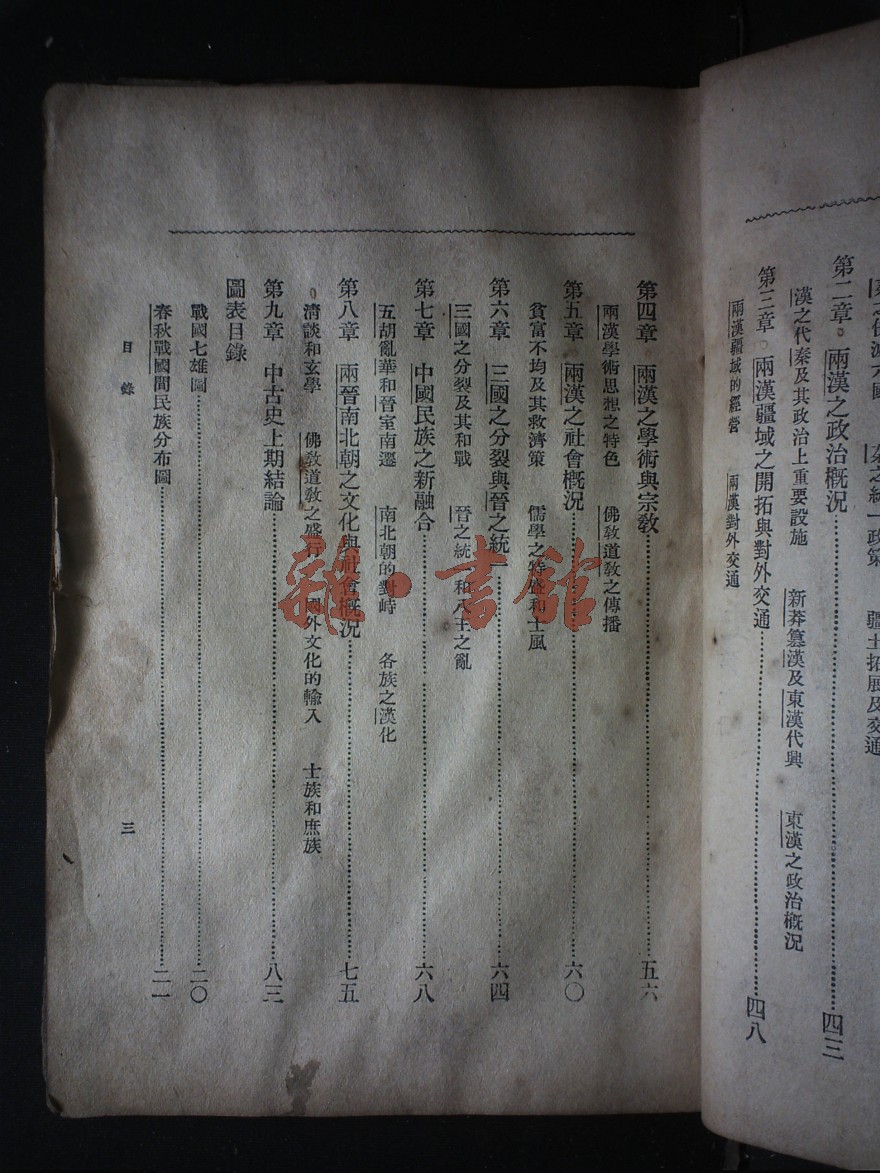 疆土拓展及交通
第二章 兩漢之政治概況……四三
漢之代秦及其政治上重要設施 新莽篡漢及東漢代興 東漢之政治概況
第三章 兩漢疆域之開拓與對外交通……四八
兩漢疆域的經營 兩漢對外交通
第四章 兩漢之學術與宗教……五六
兩漢學術思想之特色 佛敎道敎之傳播
第五章 兩漢之社會概況……六〇
貧富不均及其救濟策 儒學之特盛和士風
第六章 三國之分裂與晉之統一……六四
三國之分裂及其和戰 晉之統一和八王之亂
第七章 中國民族之新融合……六八
五胡亂華和晉室南遷 南北朝的對峙 各族之漢化
第八章 兩晉南北朝之文化與社會概況……七五
清談和玄學 佛敎道敎之盛行 國外文化的輸入 士族和庶族
第九章 中古史上期結論……八三
圖表目錄
戰國七雄圖……二〇
春秋戰國間民族分布圖……二一
目錄
三
雜·書館